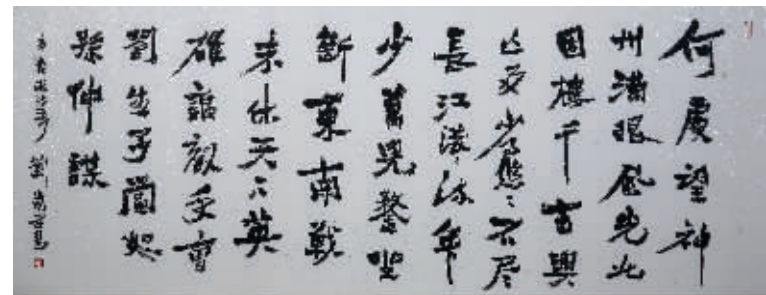 何處望神
州滿眼風光北
固樓千古興
亡多少事悠々不尽
長江滾々流年
少萬兜鍪坐
斷東南戰
未休天下英
雄誰敵手曹
劉生子當如
孫仲謀